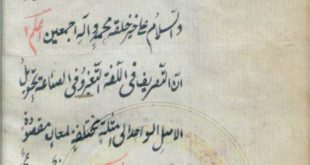 والسلام على خير خلقه محمد وآله اجمعين اعلم
ان التصريف فى اللغة التغيير وفى الصناعة تحويل
الاصل الواحد الى امثلة مختلفة لمعان مقصودة